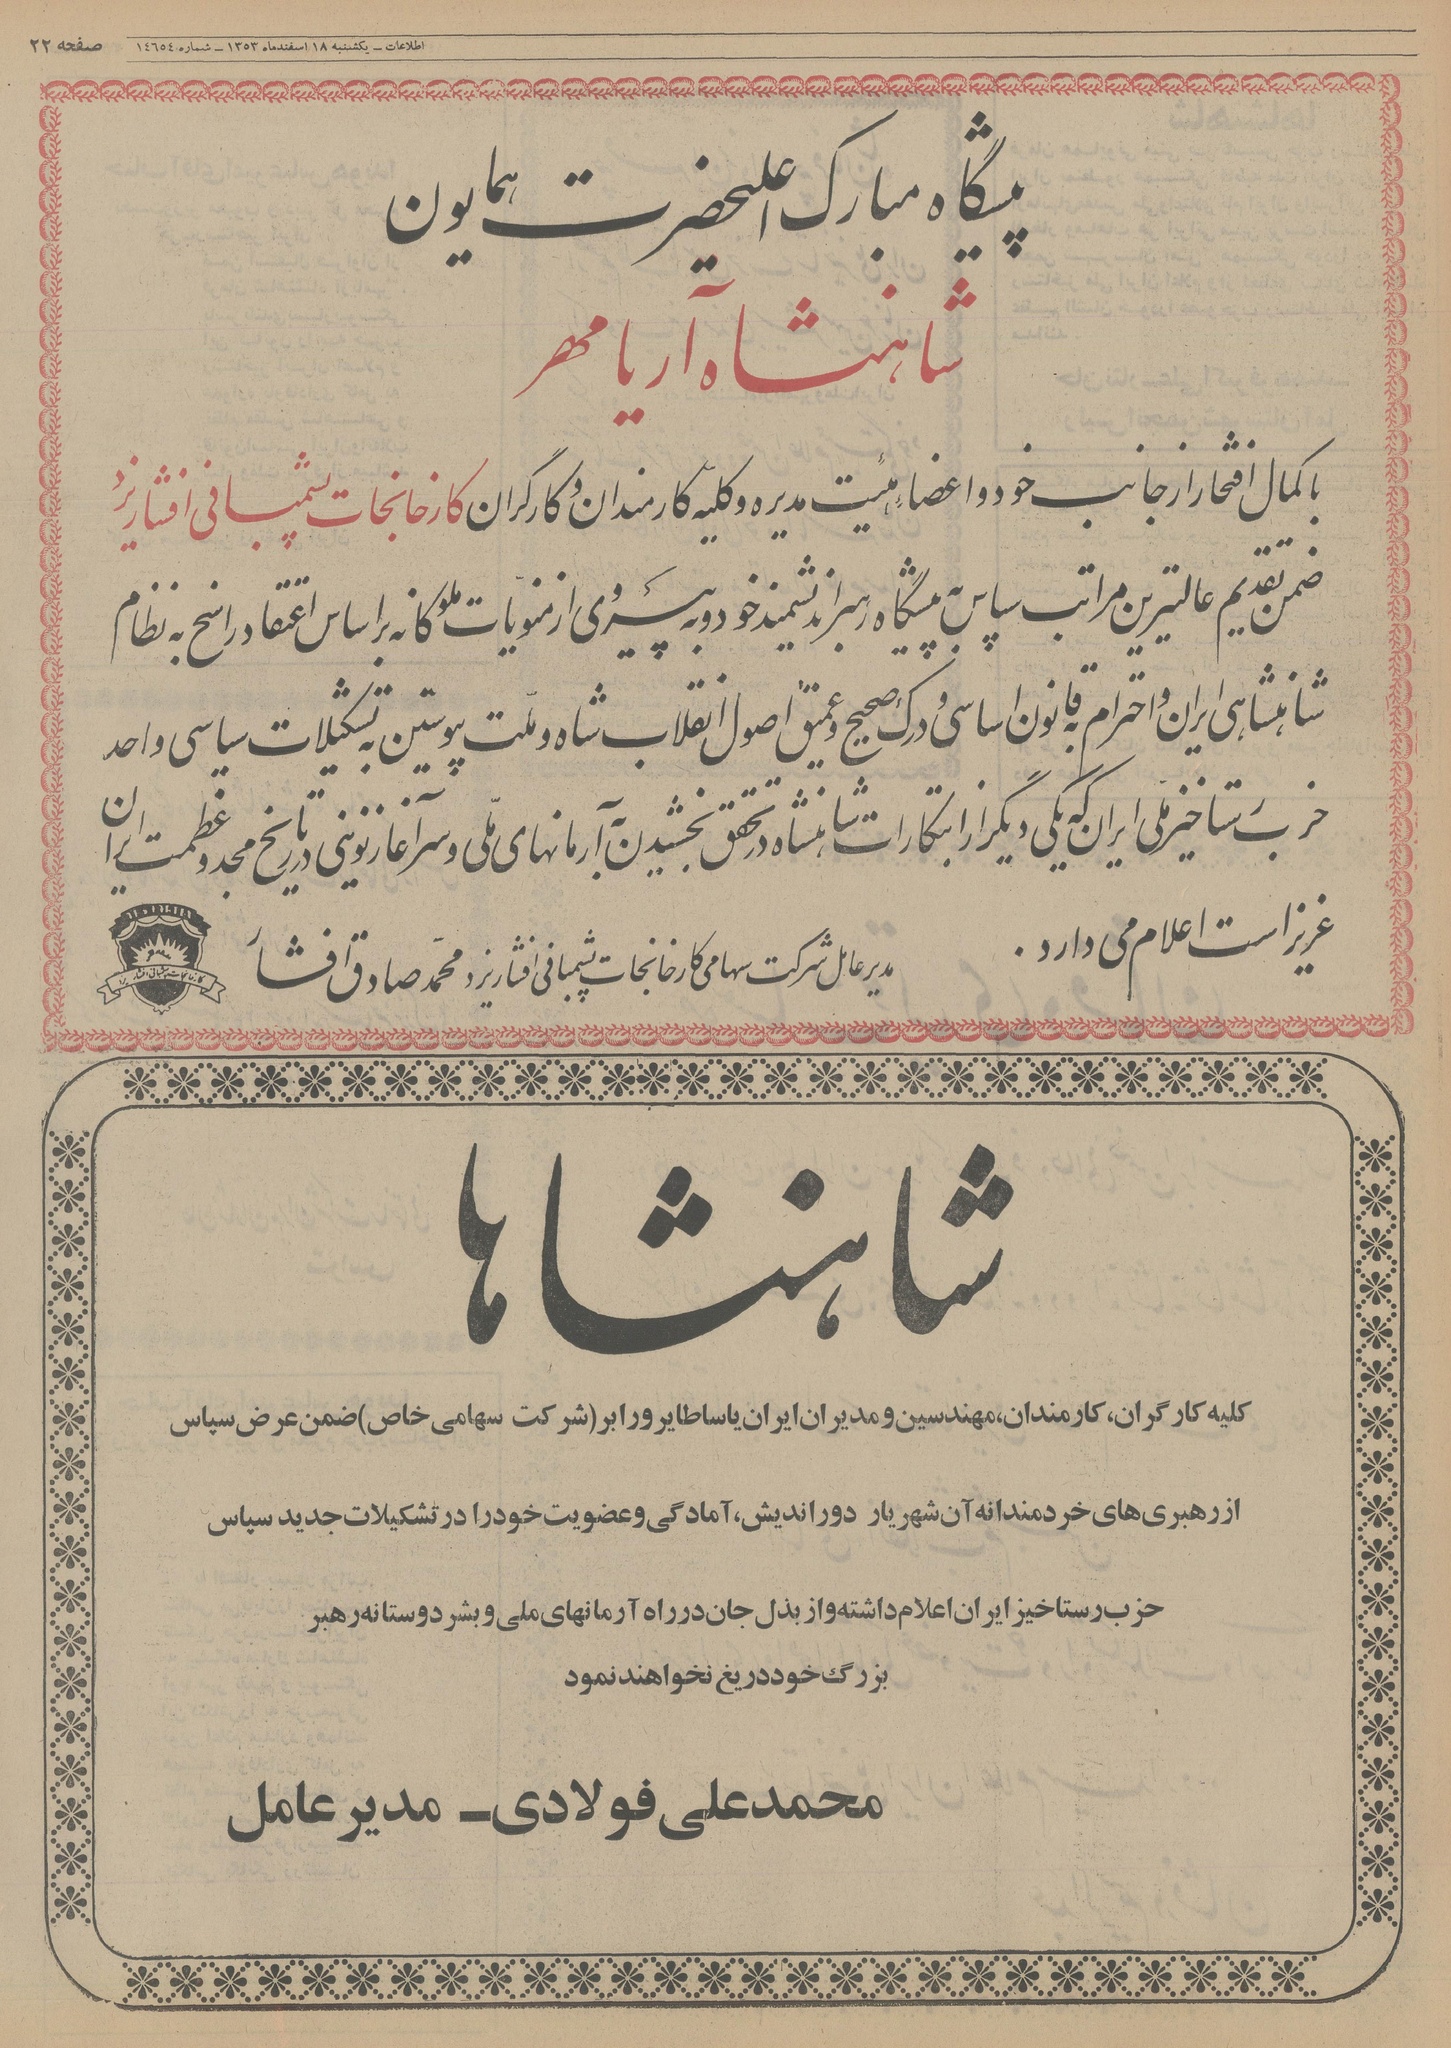 صفحه ۲۲
اطلاعات ـ یکشنبه ۱۸ اسفندماه ۱۳۵۳ ـ شماره ۱٤٦٥٤
پیشگاه مبارک اعلیحضرت همایون
شاهنشاه آریامهر
با کمال افتخار از جانب خود و اعضاء هیئت مدیره و کلیه کارمندان و کارگران کارخانجات پشمبافی افشار یزد
ضمن تقدیم عالیترین مراتب سپاس به پیشگاه رهبر اندیشمند خود و به پیروی از منویات ملوکانه بر اساس اعتقاد راسخ به نظام
شاهنشاهی ایران و احترام به قانون اساسی و درک صحیح و عمیق اصول انقلاب شاه و ملت پیوستن به تشکیلات سیاسی واحد
حزب رستاخیز ملی ایران که یکی دیگر از ابتکارات شاهنشاه در تحقق بخشیدن به آرمانهای ملی و سرآغاز نوینی در تاریخ مجد و عظمت ایران
عزیز است اعلام می دارد .
مدیر عامل شرکت سهامی کارخانجات پشمبافی افشار یزد محمد صادق افشار
شاهنشاها
کلیه کارگران، کارمندان، مهندسین و مدیران ایران یاسا طایر و رابر (شرکت سهامی خاص) ضمن عرض سپاس
از رهبری های خردمندانه آن شهریار دوراندیش، آمادگی و عضویت خود را در تشکیلات جدید سپاس
حزب رستاخیز ایران اعلام داشته و از بذل جان در راه آرمانهای ملی و بشر دوستانه رهبر
بزرگ خود دریغ نخواهند نمود
محمدعلی فولادی ـ مدیر عامل